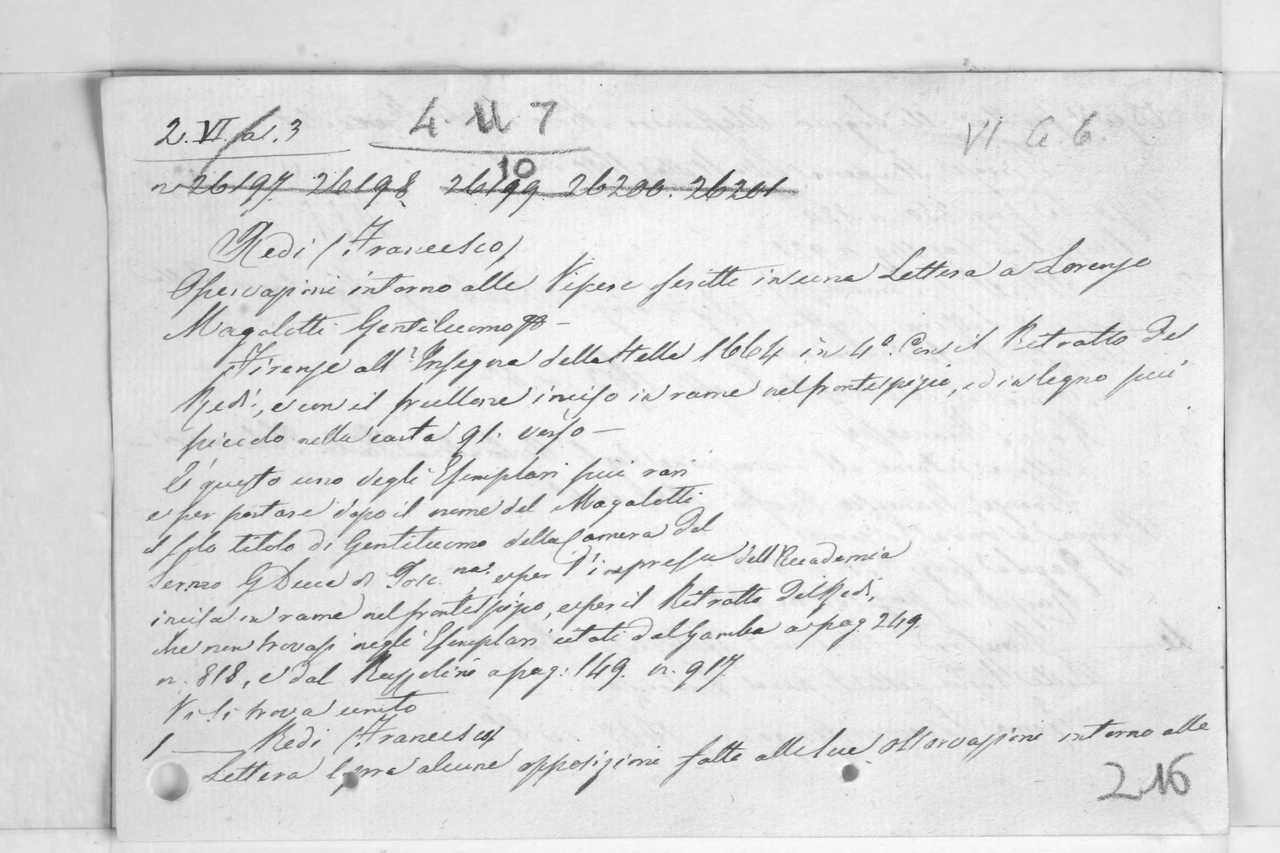 2. VI pal. 3
4. U 7
10
VI. G. 6.
n 26197. 26198. 26199. 26200. 26201
Redi (Francesco)
Osservazioni intorno alle Vipere scritte in una Lettera a Lorenzo
Magalotti Gentiluomo —
Firenze all'Insegna della Stella 1664 in 4°. Con il Ritratto del
Redi, e con il frullone inciso in rame nel frontespizio, ed in legno più
piccolo nella carta 91. verso —
È questo uno degli Esemplari più rari
e per portare dopo il nome del Magalotti
il solo titolo di Gentiluomo della Camera del
Sermo G Duca di Tosc.na, e per l'impresa dell'Accademia
incisa in rame nel frontespizio, e per il Ritratto del Redi,
che non trovasi negli Esemplari citati dal Gamba a pag. 249.
n. 818, e dal Razzolini a pag: 149. n. 917.
Vi si trova unito
1 — Redi (Francesco)
Lettera sopra alcune opposizioni fatte alle sue osservazioni intorno alle
216